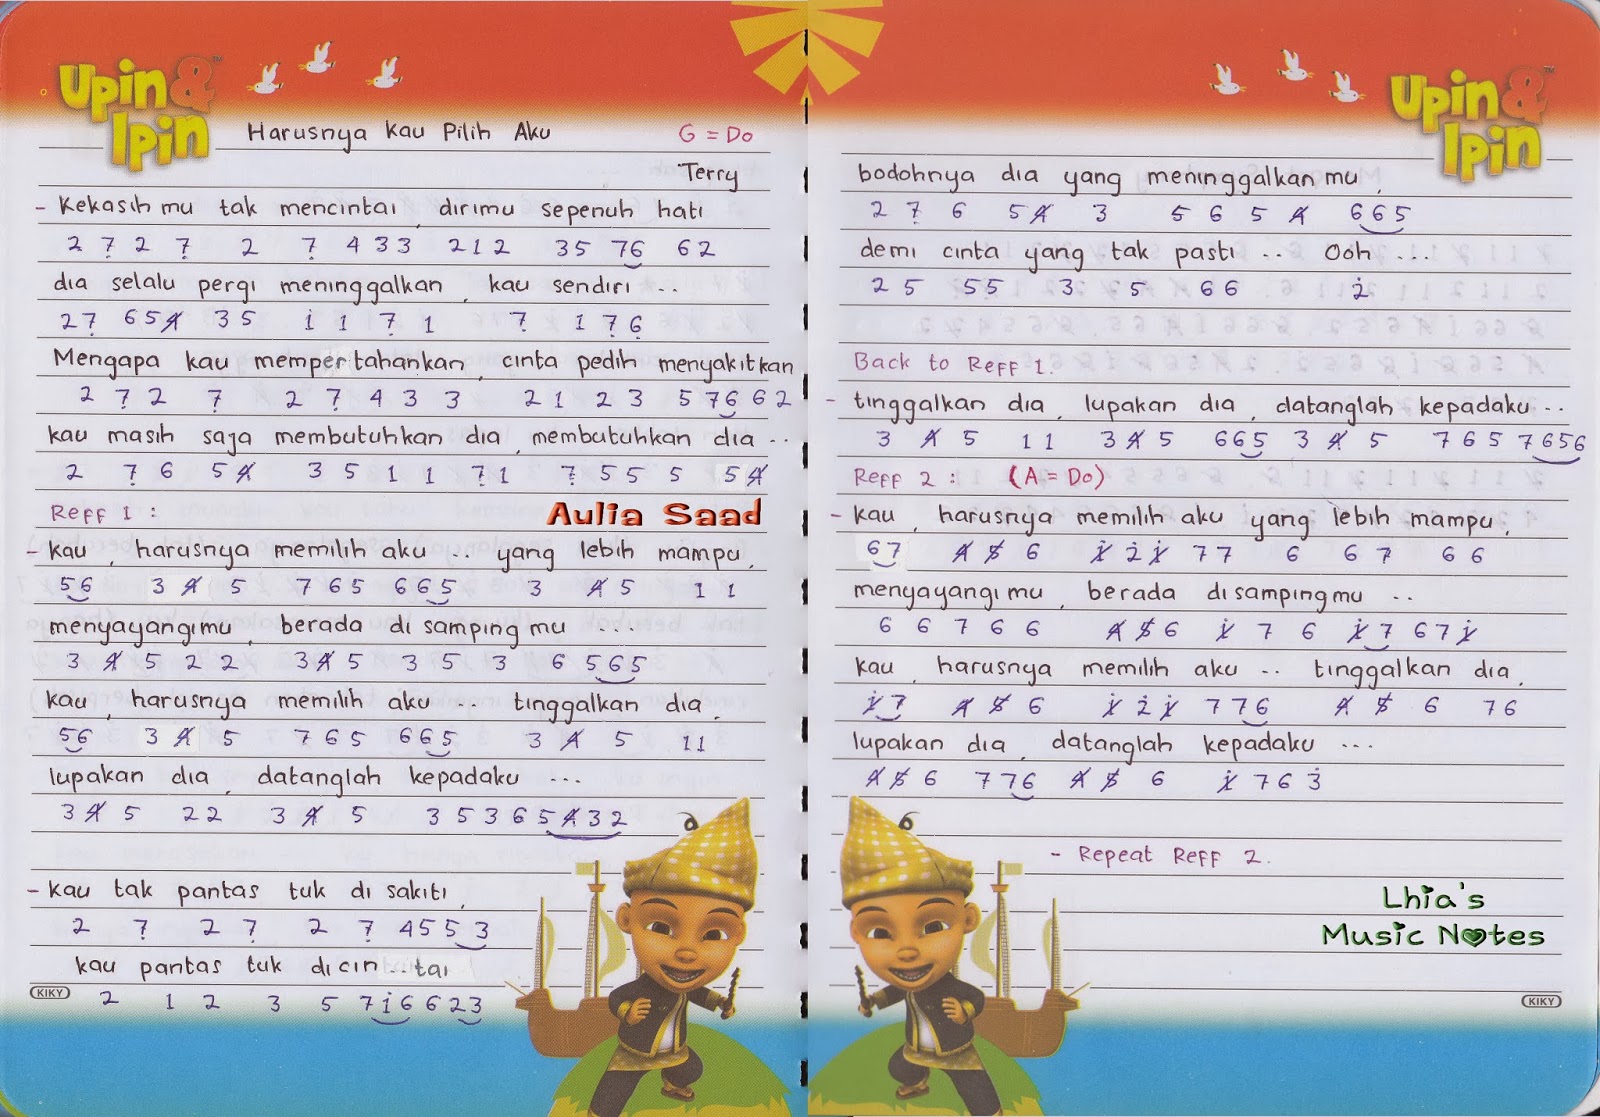 Upin & Ipin™
Harusnya Kau Pilih Aku G = Do
Terry
- Kekasih mu tak mencintai, dirimu sepenuh hati
2 7̣ 2 7̣ 2 7̣ 4 3 3 2 1 2 3 5 7 6 6 2
dia selalu pergi meninggalkan, kau sendiri ...
2 7̣ 6 5 4̸ 3 5 1̇ 1 7̣ 1 7̣ 1 7̣ 6̣
Mengapa kau mempertahankan, cinta pedih menyakitkan
2 7̣ 2 7̣ 2 7̣ 4 3 3 2 1 2 3 5 7 6 6 2
kau masih saja membutuhkan dia, membutuhkan dia ..
2 7̣ 6 5 4̸ 3 5 1 1 7̣ 1 7̣ 5 5 5 5 4̸
Reff 1 :
Aulia Saad
- kau, harusnya memilih aku ... yang lebih mampu,
5 6 3 4̸ 5 7 6 5 6 6 5 3 4̸ 5 1 1
menyayangimu, berada di samping mu ...
3 4̸ 5 2 2 3 4̸ 5 3 5 3 6 5 6 5
kau, harusnya memilih aku .. tinggalkan dia,
5 6 3 4̸ 5 7 6 5 6 6 5 3 4̸ 5 1 1
lupakan dia, datanglah kepadaku ...
3 4̸ 5 2 2 3 4̸ 5 3 5 3 6 5 4̸ 3 2
- kau tak pantas tuk di sakiti,
2 7̣ 2 7̣ 2 7̣ 4 5 5 3
kau pantas tuk dicin..tai
2 1 2 3 5 7 1̇ 6 6 2 3
KIKY
Upin & Ipin™
bodohnya dia yang meninggalkan mu,
2 7̣ 6 5 4̸ 3 5 6 5 4̸ 6 6 5
demi cinta yang tak pasti ... Ooh ...
2 5 5 5 3 5 6 6 2̇
Back to Reff 1.
- tinggalkan dia, lupakan dia, datanglah kepadaku ..
3 4̸ 5 1 1 3 4̸ 5 6 6 5 3 4̸ 5 7 6 5 7 6 5 6
Reff 2 : (A = Do)
- kau, harusnya memilih aku yang lebih mampu,
6 7 4̸ 5̸ 6 1̸̇ 2̇ 1̸̇ 7 7 6 6 7 6 6
menyayangi mu, berada disampingmu ..
6 6 7 6 6 4̸ 5̸ 6 1̸̇ 7 6 1̸̇ 7 6 7 1̸̇
kau, harusnya memilih aku .. tinggalkan dia,
1̸̇ 7 4̸ 5̸ 6 1̸̇ 2̇ 1̸̇ 7 7 6 4̸ 5̸ 6 7 6
lupakan dia, datanglah kepadaku ...
4̸ 5̸ 6 7 7 6 4̸ 5̸ 6 1̸̇ 7 6 3̇
- Repeat Reff 2.
Lhia's
Music Notes
KIKY